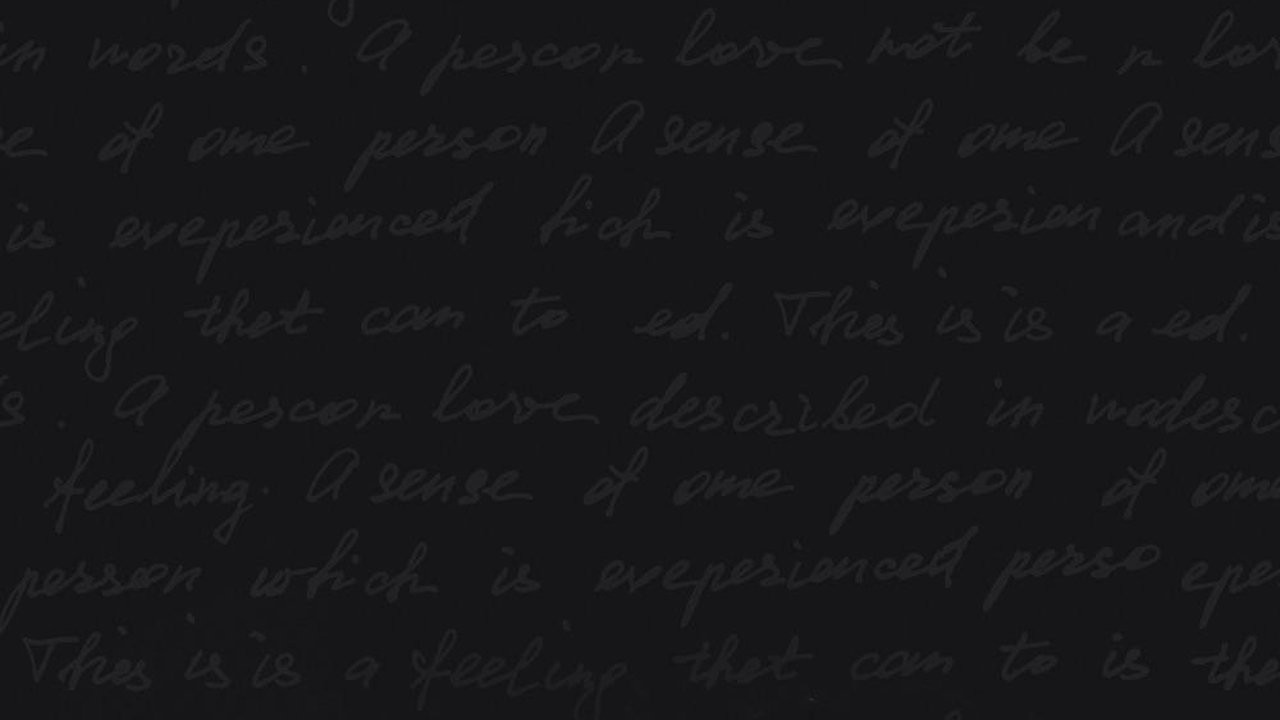 in words. A pescon love not be n lov
se of ome person A sense of ome A sens
is evepesienced hich is evepesien and is
eling thet can to ed. This is is a ed.
s. A pescon love described in wodesc
feeling. A sense of ome person of ome
person which is evepesienced perso epe
This is is a feeling thet can to is the